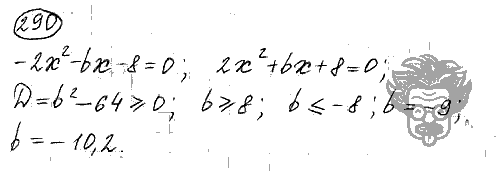 290
-2x²-bx-8=0; 2x²+bx+8=0;
D=b²-64≥0; b≥8; b≤-8; b=-9;
b=-10,2.